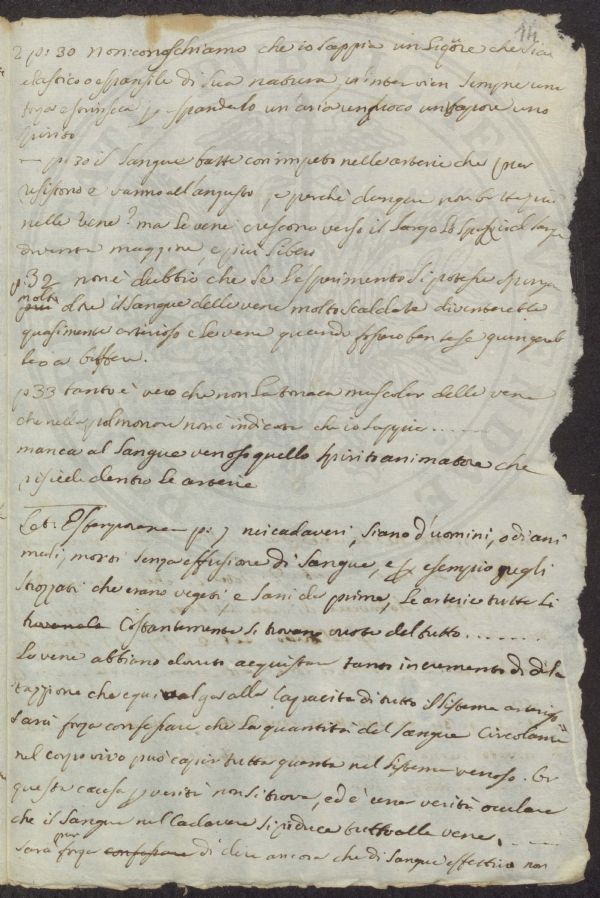 14.
2 p: 30 non conoschiamo che io sappia un liquore che sia
elastico o espansile di sua natura, vi intervien sempre una
forza estrinseca p espanderlo un'aria un fuoco un vapore uno
spirito
— p: 30 il sangue batte con impeto nelle arterie che
resistono e vanno all'angusto, e perchè dunque non batte
nelle vene? ma le vene crescono verso il largo lo spazio
diventa maggiore, e più libero
p. 32 non è dubbio che se l'esperimento si potesse
molto oltre il sangue delle vene molto scaldate diventerebbe
quasimente arterioso e le vene quando fossero ben tese
a battere.
p 33 tanto è vero che non la tonaca muscolar delle vene
che nella pulmonar non è indicata che io sappia ......
manca al sangue venoso quello spirito animatore che
risiede dentro le arterie
Let: p: 7 nei cadaveri, siano d'uomini, o di ani
mali, morti senza effusione di sangue, e p esempio negli
strozzati che erano vegeti e sani da prima, le arterie tutte si
trovano Costantemente si trovano vuote del tutto .......
Le vene abbiano dovuto acquistar tanto incremento di dila
tazione che equivalga alla capacità di tutto il sistema
sarà forza confessare, che la quantità del sangue circolante
nel corpo vivo può capir tutta quanta nel sistema venoso. Or
questa causa p verità non si trova, ed è una verità oculare
che il sangue nel cadavere si riduce tutto alle vene. ....
sarà pur forza confessare di dire ancora che di sangue effettivo non